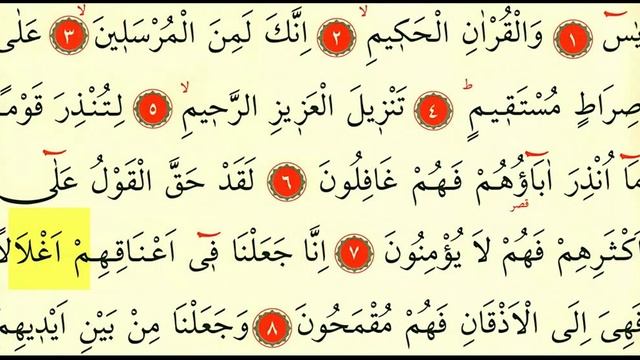 يٰسٓ ۝١ وَالْقُرْاٰنِ الْحَكٖيمِۙ ۝٢ اِنَّكَ لَمِنَ الْمُرْسَلٖينَۙ ۝٣ عَلٰى
صِرَاطٍ مُسْتَقٖيمٍؕ ۝٤ تَنْزٖيلَ الْعَزٖيزِ الرَّحٖيمِۙ ۝٥ لِتُنْذِرَ قَوْمًا
مَٓا اُنْذِرَ اٰبَٓاؤُ۬هُمْ فَهُمْ غَافِلُونَ ۝٦ لَقَدْ حَقَّ الْقَوْلُ عَلٰٓى
قصر
اَكْثَرِهِمْ فَهُمْ لَا يُؤْمِنُونَ ۝٧ اِنَّا جَعَلْنَا فٖٓي اَعْنَاقِهِمْ اَغْلَالًا
فَهِيَ اِلَى الْاَذْقَانِ فَهُمْ مُقْمَحُونَ ۝٨ وَجَعَلْنَا مِنْ بَيْنِ اَيْدٖيهِمْ